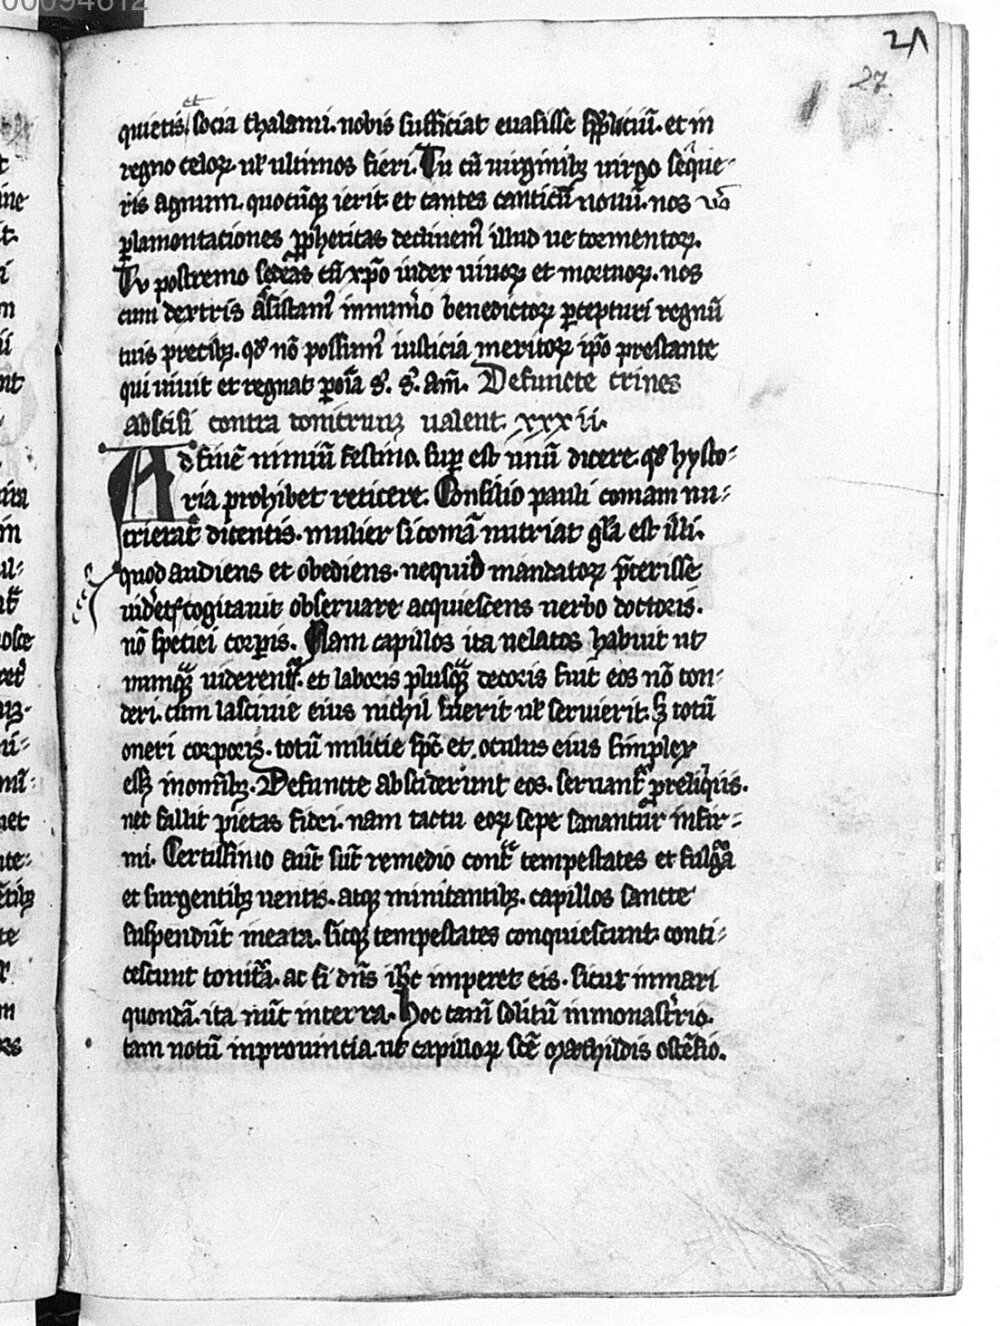 00094612
21
27.
et
quietis. socia thalami. nobis sufficiat euasisse suppliciū. et in
regno celoꝝ. uł ultimos fieri. Tu cū uirginibꝫ uirgo seq̄ue-
ris agnum. quocūqꝫ ierit. et cantes canticū nouū. nos uͦ
ꝑ lamentationes ꝓpheticas declinemꝰ illud ue tormentoꝝ.
Tu postremo sedeas cū xp̄o iudex uiuoꝝ et mortuoꝝ. nos
cum dextris assistamꝰ in numͦo benedictoꝝ ꝑcepturi regnū
tuis precibꝫ. qđ nō possumꝰ iusticia meritoꝝ ip̄o prestante
qui uiuit et regnat ꝑ oīa s̄. s̄. am̄. Defuncte crines
abscisi contra tonitruuꝫ ualent. xxxii.
Ad finē nimiū festino. suꝑ est unū dicere. qđ hysto-
ria prohibet reticere. Consilio pauli comam nu-
trierat dicentis. mulier si comā nutriat gl̄a est illi.
quod audiens et obediens. ne quid mandatoꝝ p̄terisse
uideret̉ cogitauit obseruare acquiescens uerbo doctoris.
nō speciei corꝑis. Nam capillos ita uelatos habuit ut
nunqᷓ uiderent̉. et laboris plusqᷓ decoris fuit eos nō ton-
deri. cum lasciuie eius nichil fuerit uł seruierit. s̄ totū
oneri corporis. totū militie sp̄c et. oculus eius simplex
eēt in om̄ibꝫ. Defuncte absciderunt eos. seruant̉ p̄ reliquiis.
nec fallit pietas fidei. nam tactu eoꝝ sepe sanantur infir-
mi. Certissimo aūt sūt remedio contᷓ tempestates et fulgᷓa
et surgentibꝫ uentis. atqꝫ minitantibꝫ. capillos sancte
suspendūt in eata. sicqꝫ tempestates conquiescunt. conti-
cescunt tonitᷓa. ac si dn̄s ih̄c imperet eis. sicut in mari
quondā. ita nūc in terra. Hoc tam̄ solitū in monasterio.
tam notū in prouincia. ut capilloꝝ sc̄e mathildis ostēsio.